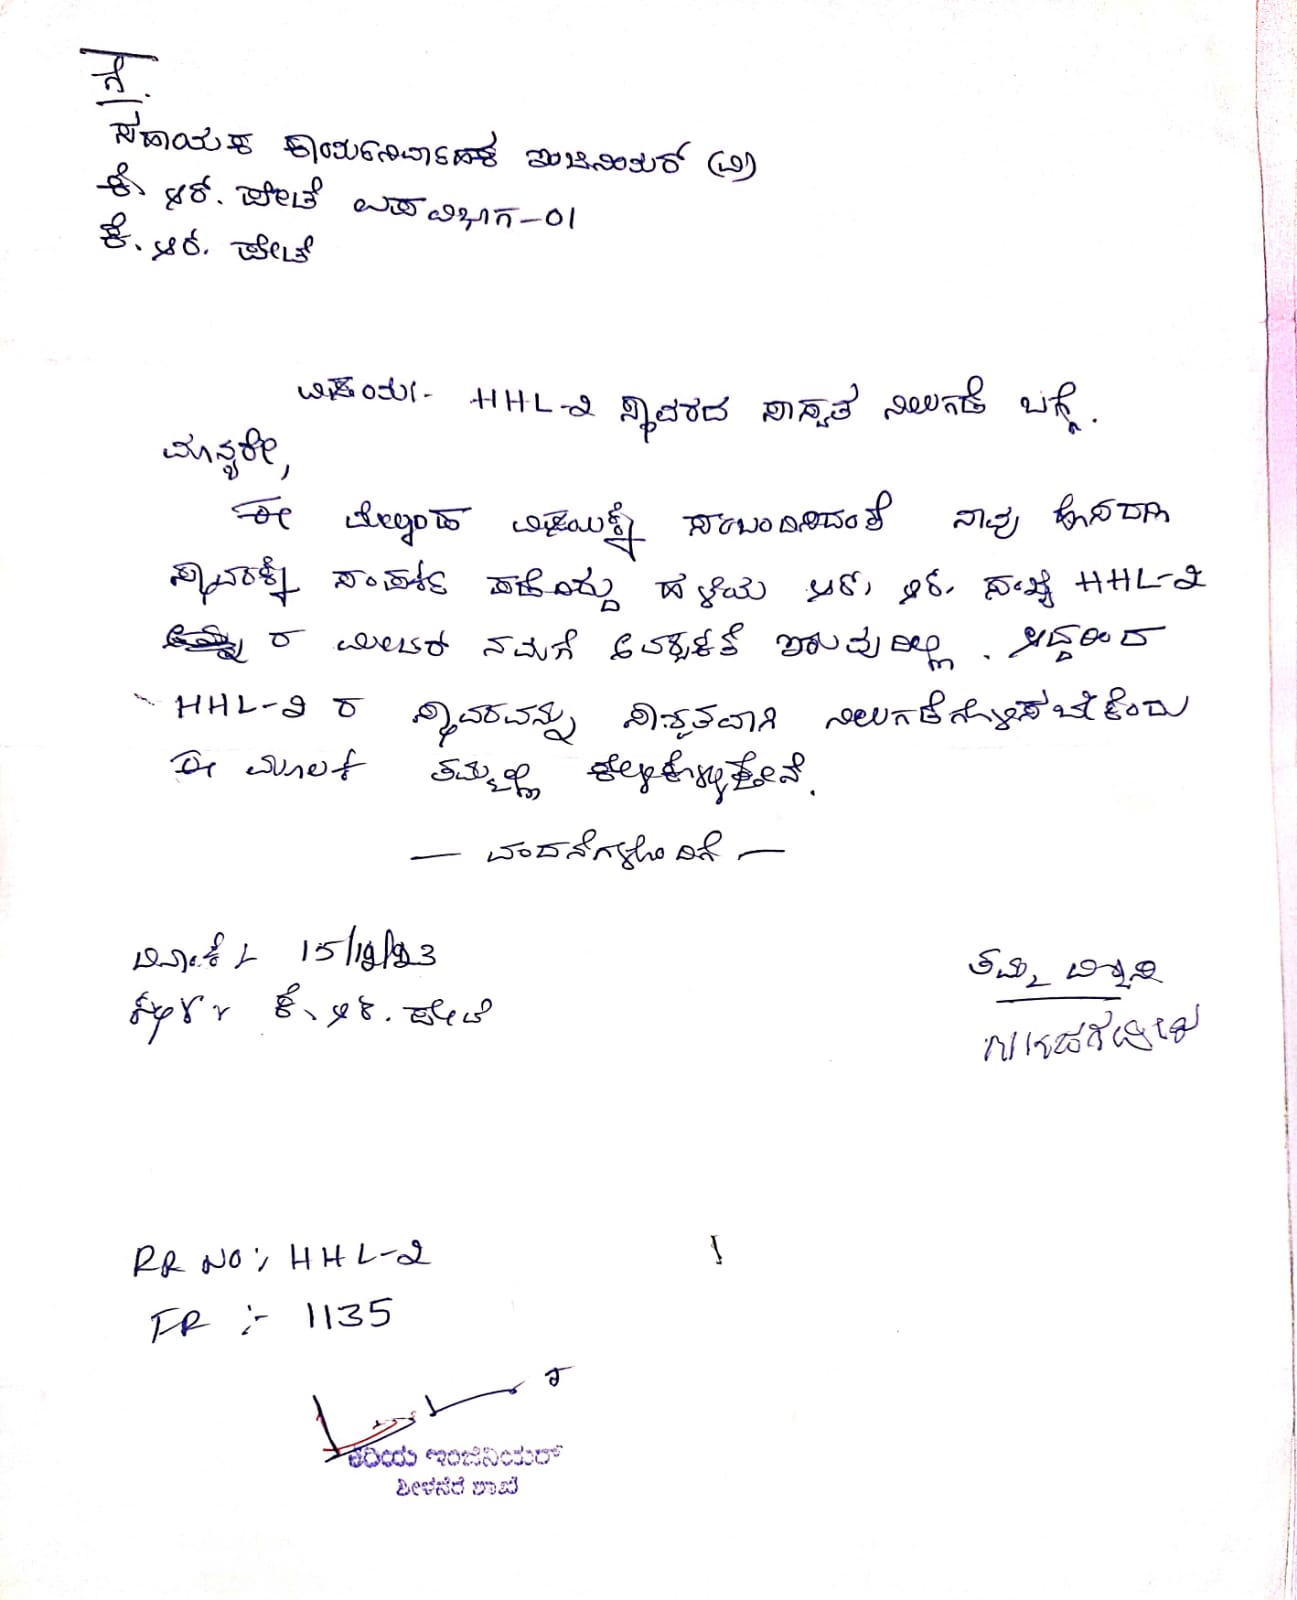 ಗೆ.
ಸಹಾಯಕ ಕಾರ್ಯನಿರ್ವಾಹಕ ಇಂಜಿನಿಯರ್ (ವಿ)
ಕೆ. ಆರ್. ಪೇಟೆ ಉಪವಿಭಾಗ-01
ಕೆ. ಆರ್. ಪೇಟೆ
ವಿಷಯ:- HHL-2 ಸ್ಥಾವರದ ಸಾಸ್ವತ ನಿಲುಗಡೆ ಬಗ್ಗೆ.
ಮಾನ್ಯರೇ,
ಈ ಮೇಲ್ಕಂಡ ವಿಷಯಕ್ಕೆ ಸಂಬಂದಿಸಿದಂತೆ ನಾವು ಹೊಸದಾಗಿ
ಸ್ಥಾವರಕ್ಕೆ ಸಂಪರ್ಕ ಪಡೆದಿದ್ದು ಹಳೆಯ ಆರ್. ಆರ್. ಸಂಖ್ಯೆ HHL-2
ರ ಮೀಟರ್ ನಮಗೆ ಅವಶ್ಯಕತೆ ಇರುವುದಿಲ್ಲ. ಆದ್ದರಿಂದ
HHL-2 ರ ಸ್ಥಾವರವನ್ನು ನಿಲುಗಡೆಗೊಳಿಸಬೇಕೆಂದು
ಈ ಮೂಲಕ ತಮ್ಮಲ್ಲಿ ಕೇಳಿಕೊಳ್ಳುತ್ತೇನೆ.
— ವಂದನೆಗಳೊಂದಿಗೆ —
ದಿನಾಂಕ:- 15/12/23
ಸ್ಥಳ:- ಕೆ. ಆರ್. ಪೇಟೆ
ತಮ್ಮ ವಿಶ್ವಾಸಿ
RR NO:, HHL-2
FR :- 1135
ಕಿರಿಯ ಇಂಜಿನಿಯರ್
ಶೀಳನೆರೆ ಶಾಖೆ